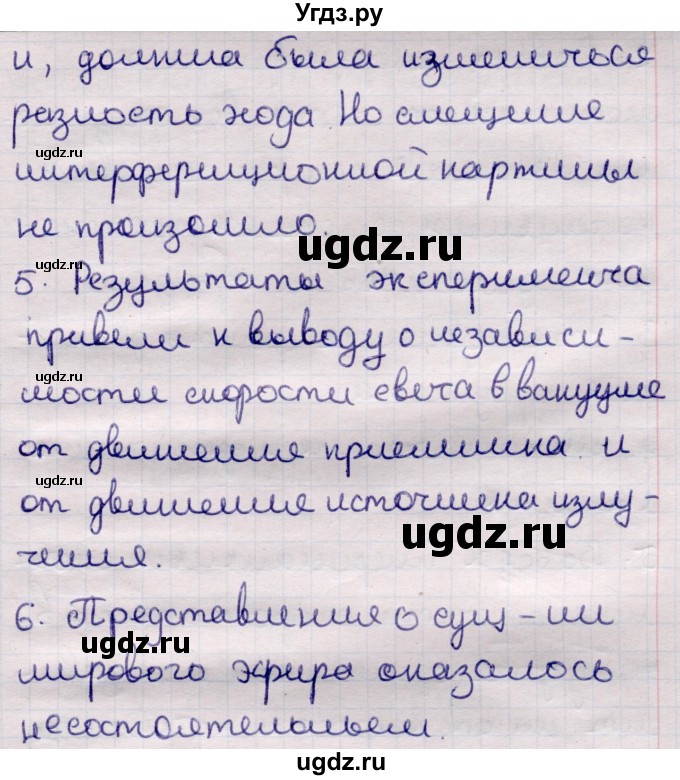 Угдз.ру
и, должна была измениться
разность хода. Но смещение
ugdz.ru
интерференционной картины
не произошло.
ugdz.ru
ugdz.ru
5. Результаты эксперимента
привели к выводу о независи-
ugdz.ru
мости скорости света в вакууме
от движения приемника и
ugdz.ru
от движения источника излу-
ugdz.ru
чения.
6. Представления о сущ-ии
ugdz.ru
мирового эфира оказалось
несостоятельным.
ugdz.ru
ugdz.ru